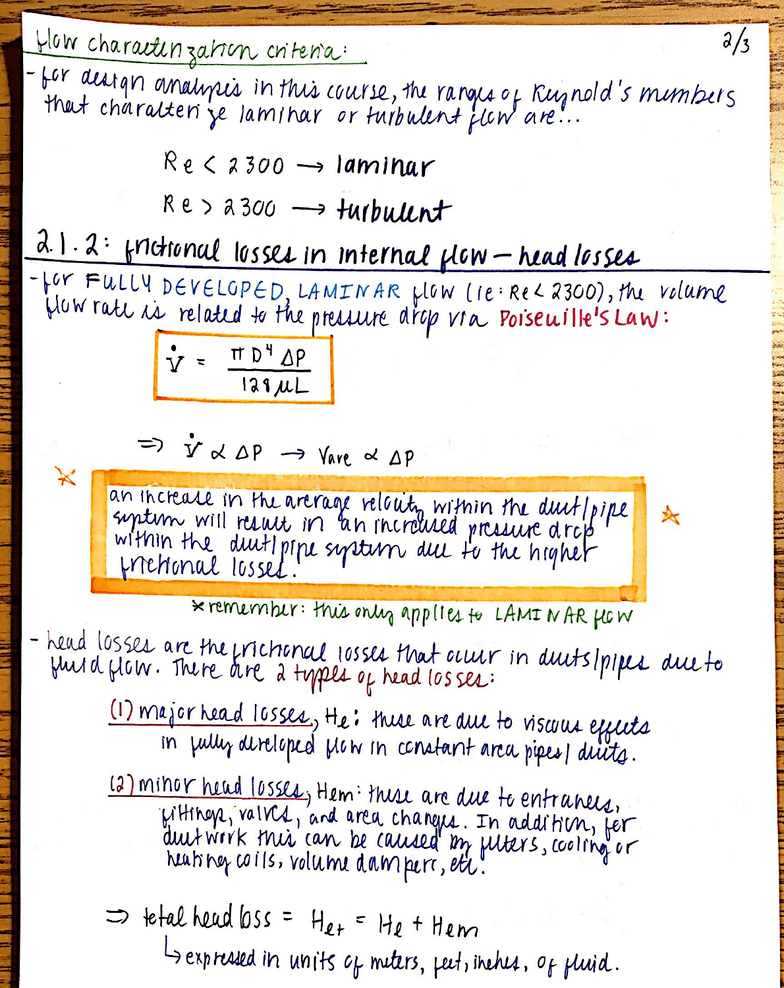 flow characterization criteria:
2/3
- for design analysis in this course, the ranges of Reynold's members
that characterize laminar or turbulent flow are...
Re < 2300 → laminar
Re > 2300 → turbulent
2.1.2: frictional losses in internal flow — head losses
- for FULLY DEVELOPED, LAMINAR flow (ie: Re < 2300), the volume
flow rate is related to the pressure drop via Poiseuille's Law:
V̇ = π D⁴ ΔP / 128 μL
⇒ V̇ ∝ ΔP → Vave ∝ ΔP
an increase in the average velocity within the duct/pipe
system will result in an increased pressure drop
within the duct/pipe system due to the higher
frictional losses.
*remember: this only applies to LAMINAR flow
- head losses are the frictional losses that occur in ducts/pipes due to
fluid flow. There are 2 types of head losses:
(1) major head losses, He: these are due to viscous effects
in fully developed flow in constant area pipes/ducts.
(2) minor head losses, Hem: these are due to entrances,
fittings, valves, and area changes. In addition, for
ductwork this can be caused by filters, cooling or
heating coils, volume dampers, etc.
⇒ total head loss = Het = He + Hem
↳ expressed in units of meters, feet, inches, of fluid.